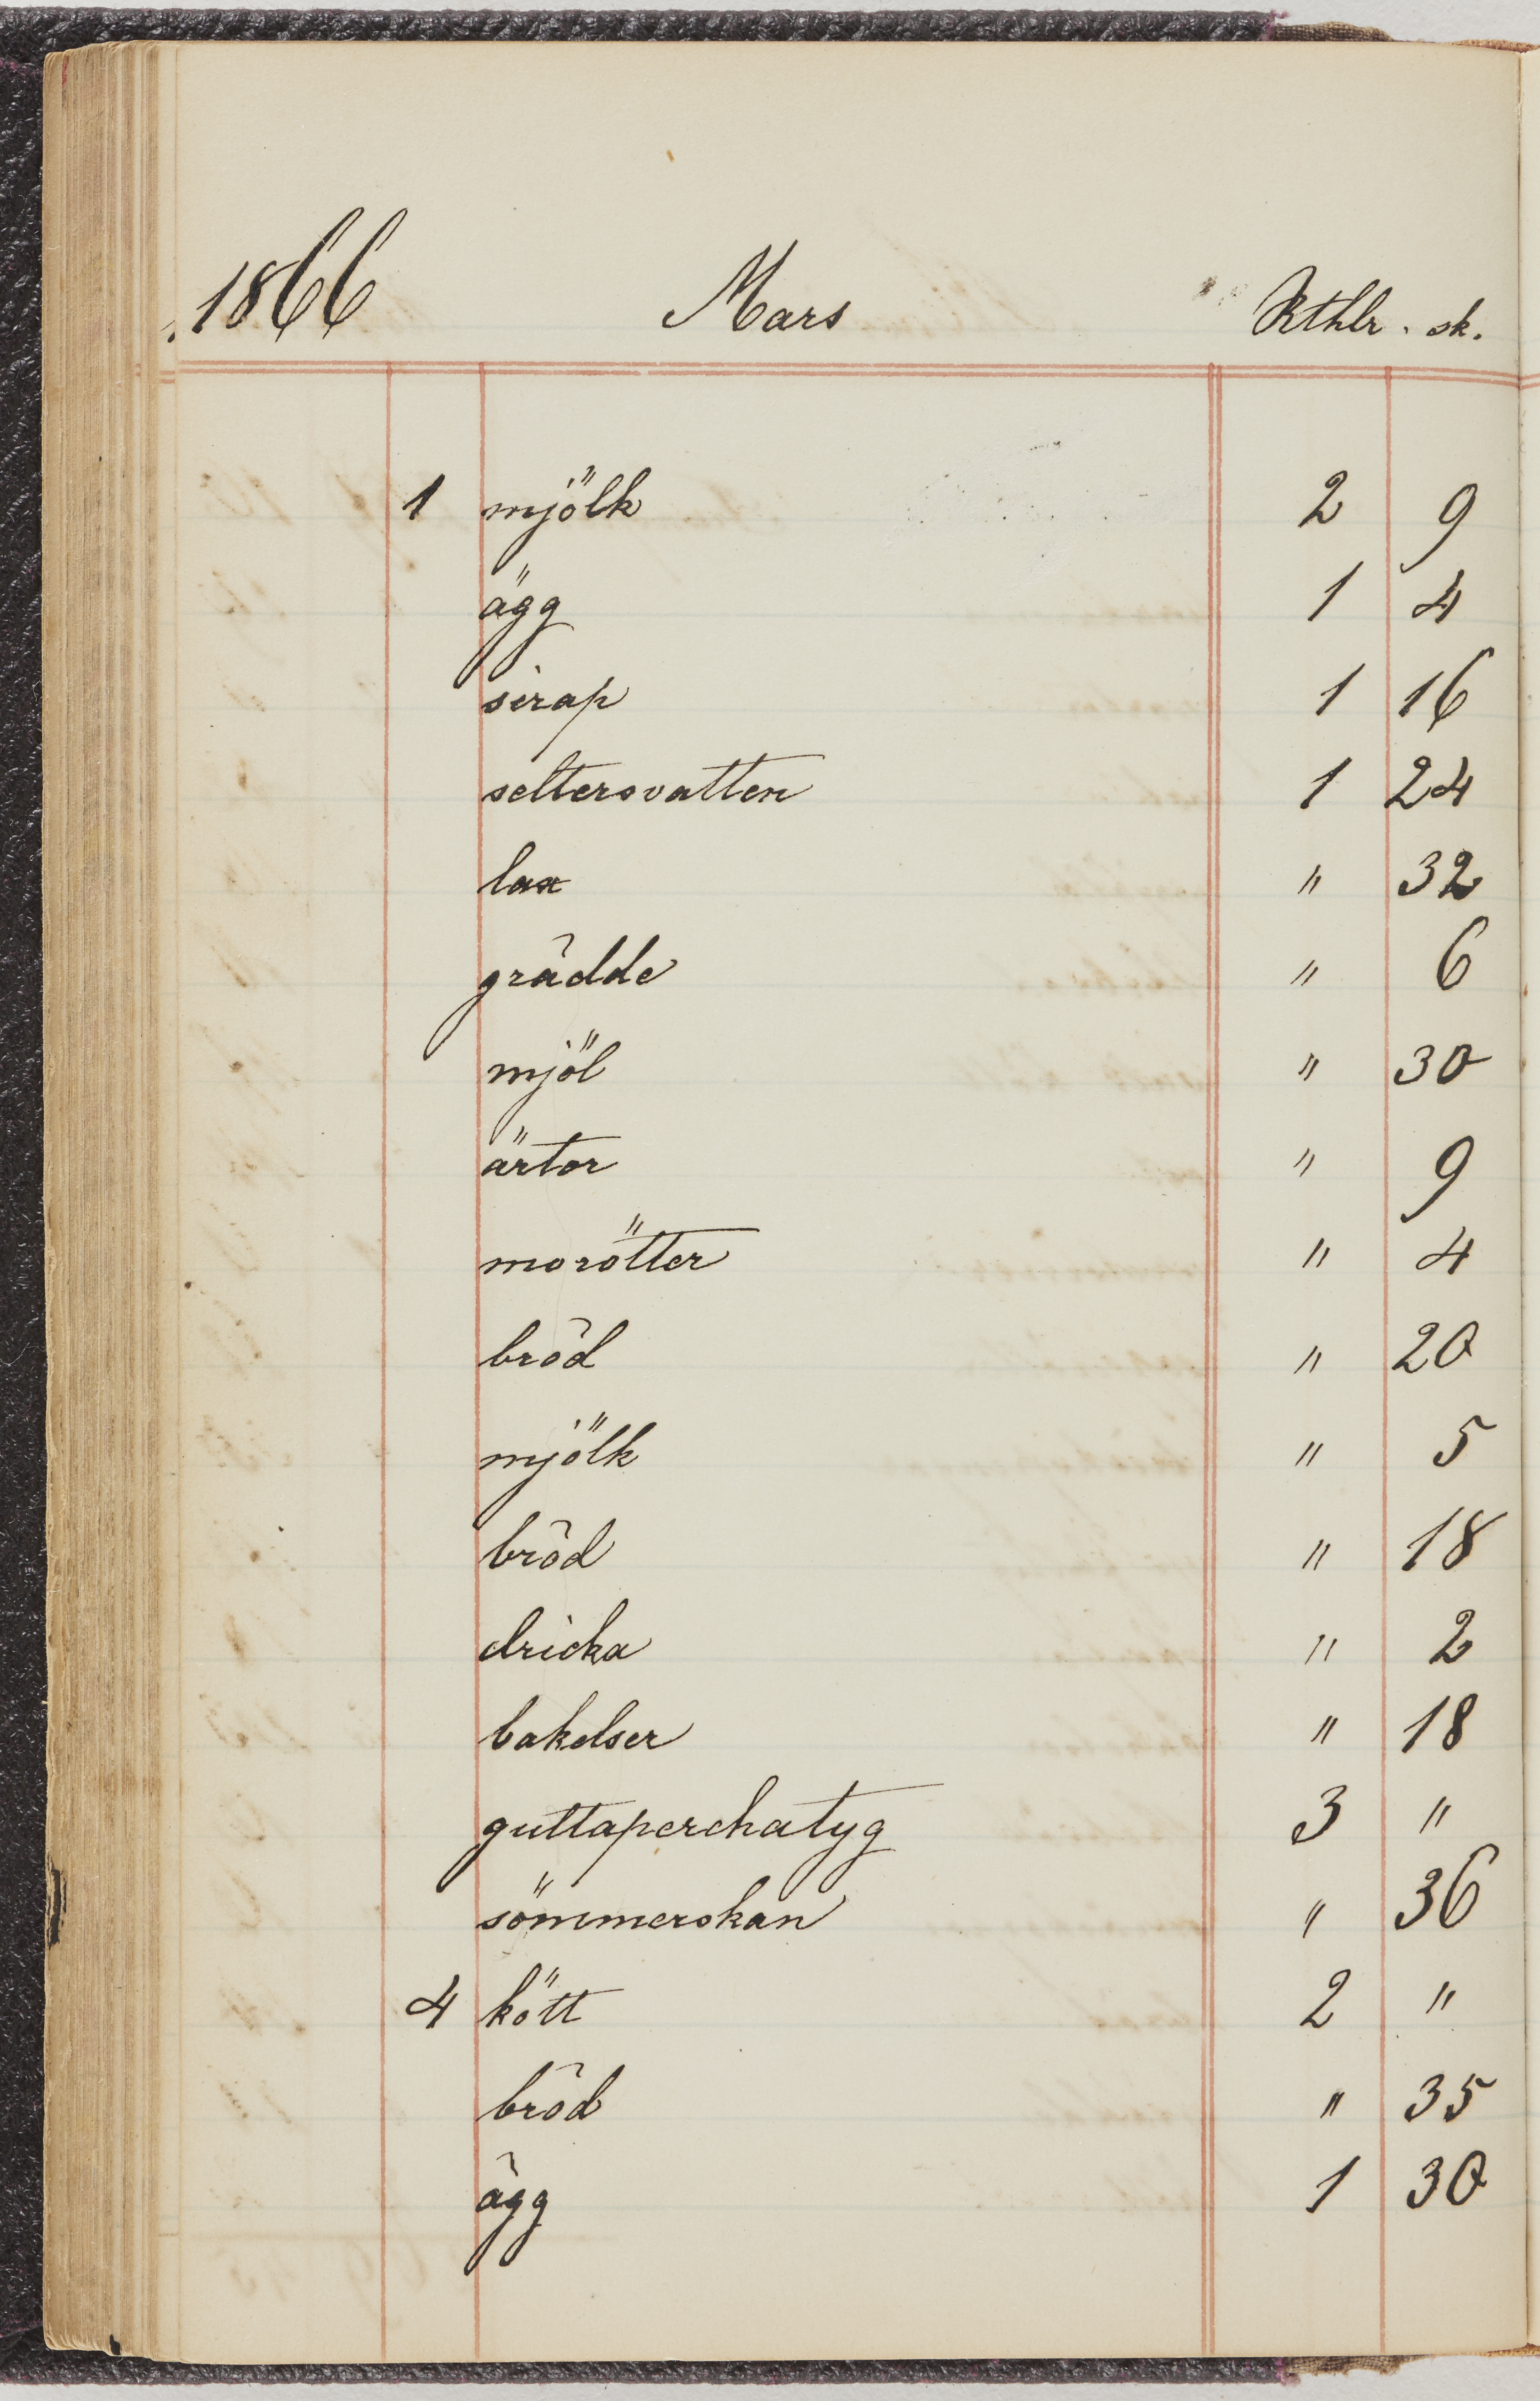 1866 Mars Rthlr. sk.
1 mjölk 2 9
ägg 1 4
sirap 1 16
seltersvatten 1 24
lax " 32
grädde " 6
mjöl " 30
ärtor " 9
morötter " 4
bröd " 20
mjölk " 5
bröd " 18
dricka " 2
bakelser " 18
guttaperchatyg 3 "
sömmerskan " 36
4 kött 2 "
bröd " 35
ägg 1 30